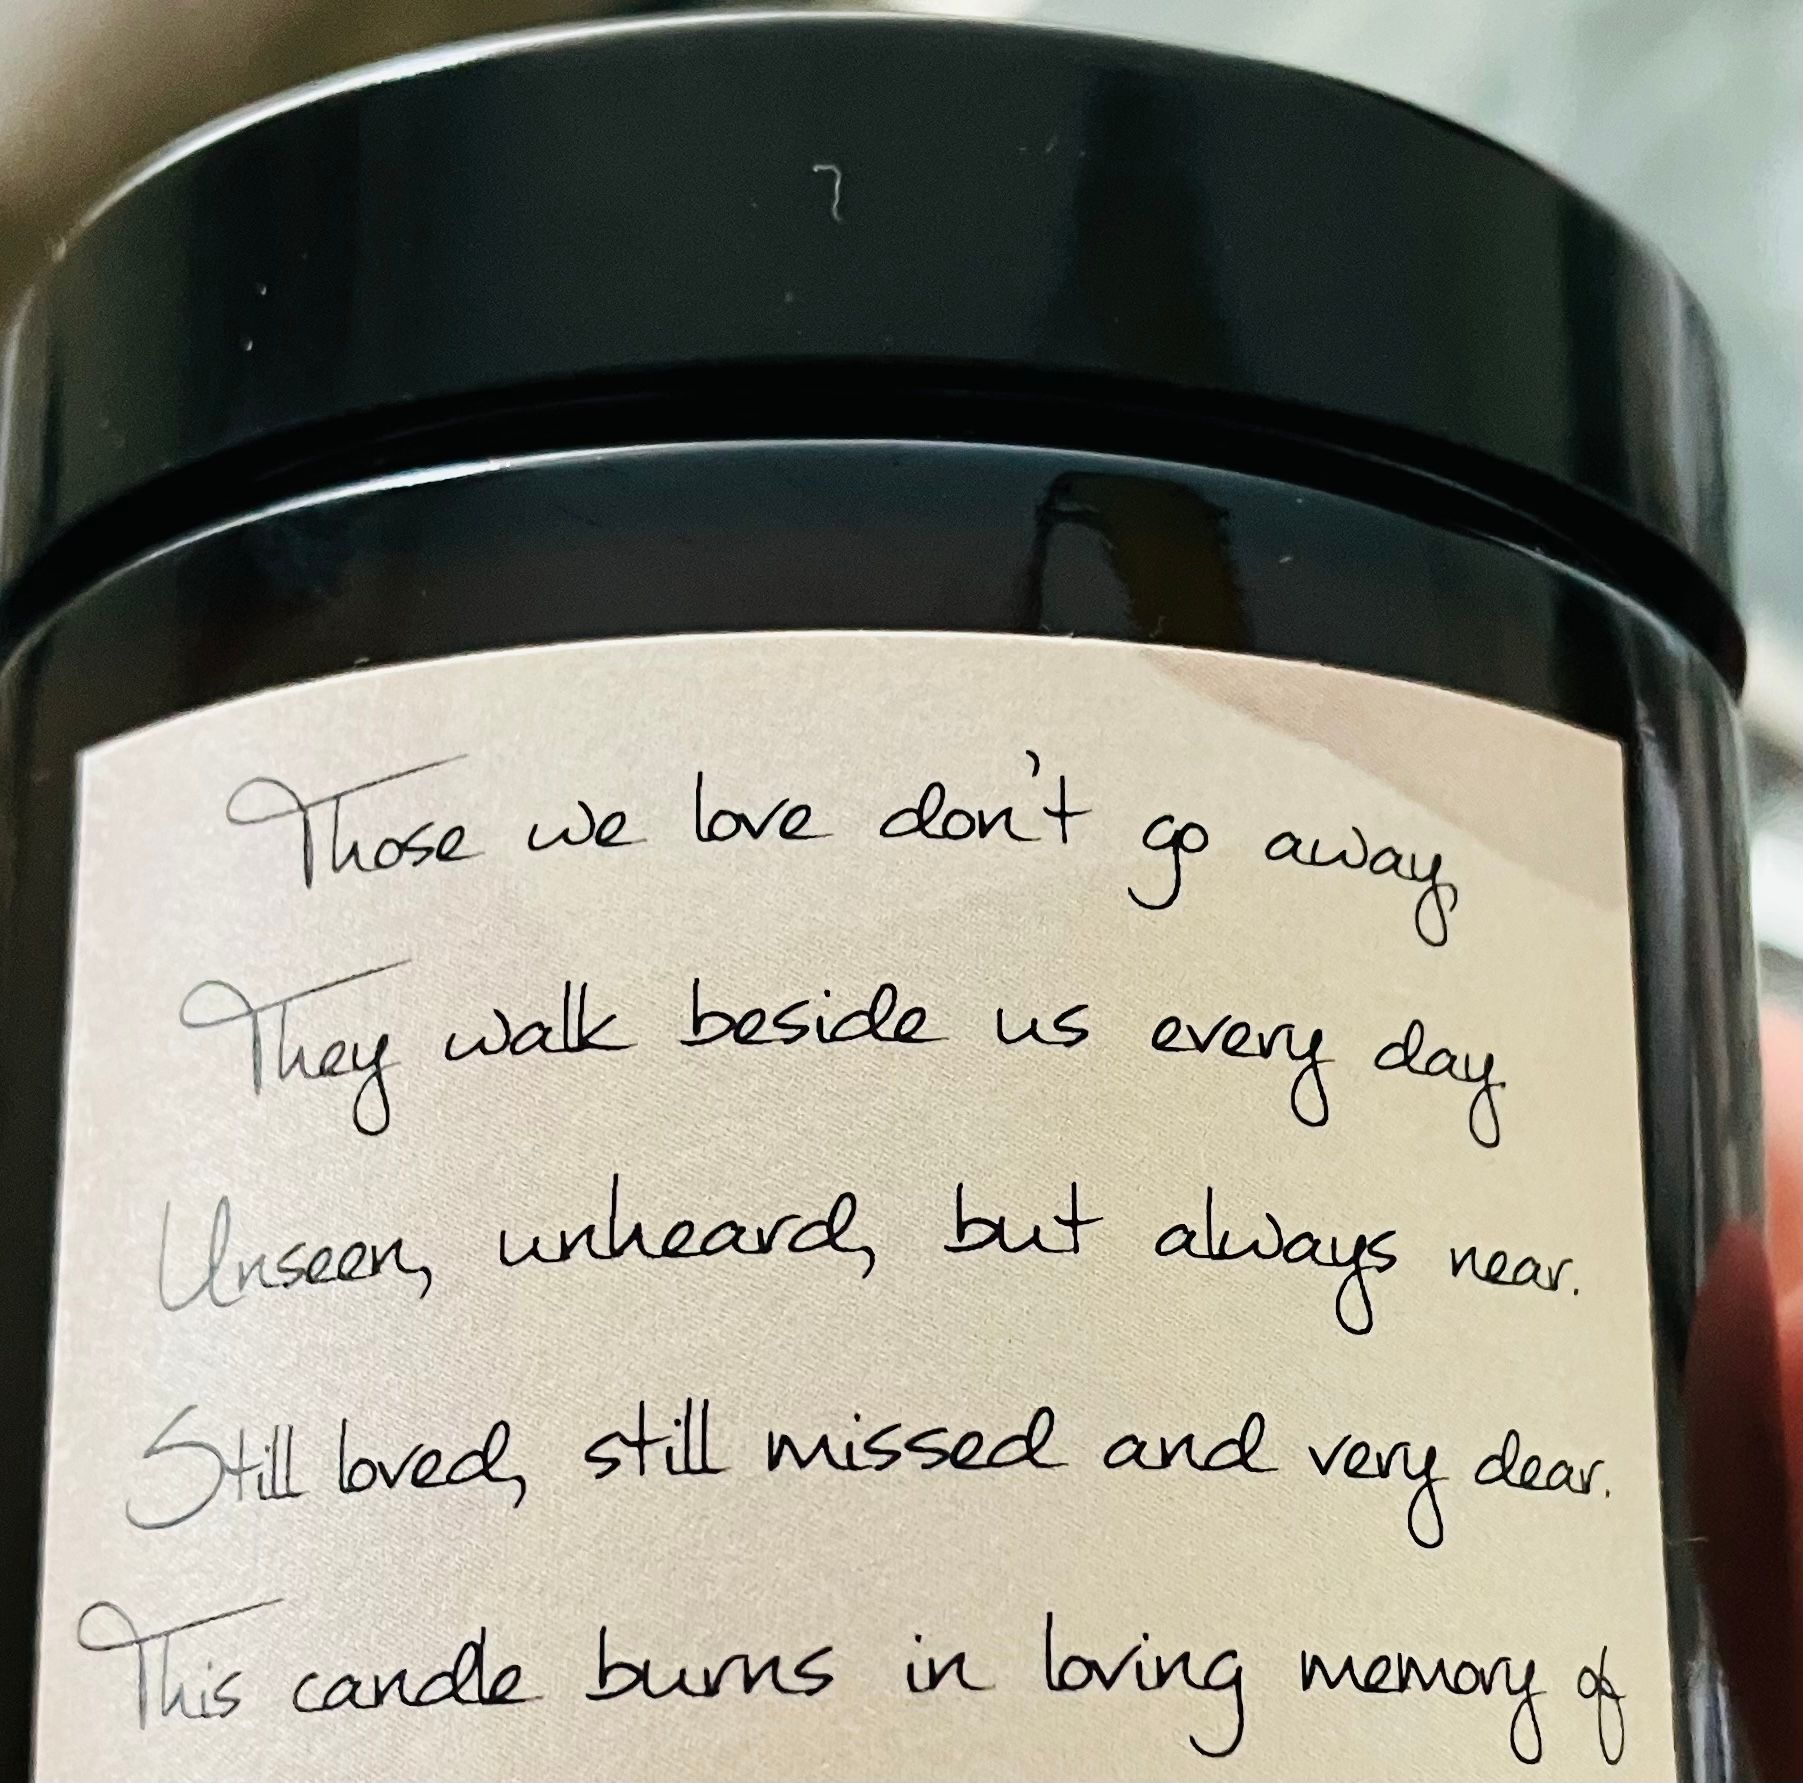 Those we love don't go away,
They walk beside us every day.
Unseen, unheard, but always near.
Still loved, still missed and very dear.
This candle burns in loving memory of